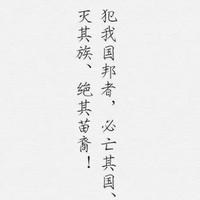 犯我国邦者，必亡其国、
灭其族、绝其苗裔！